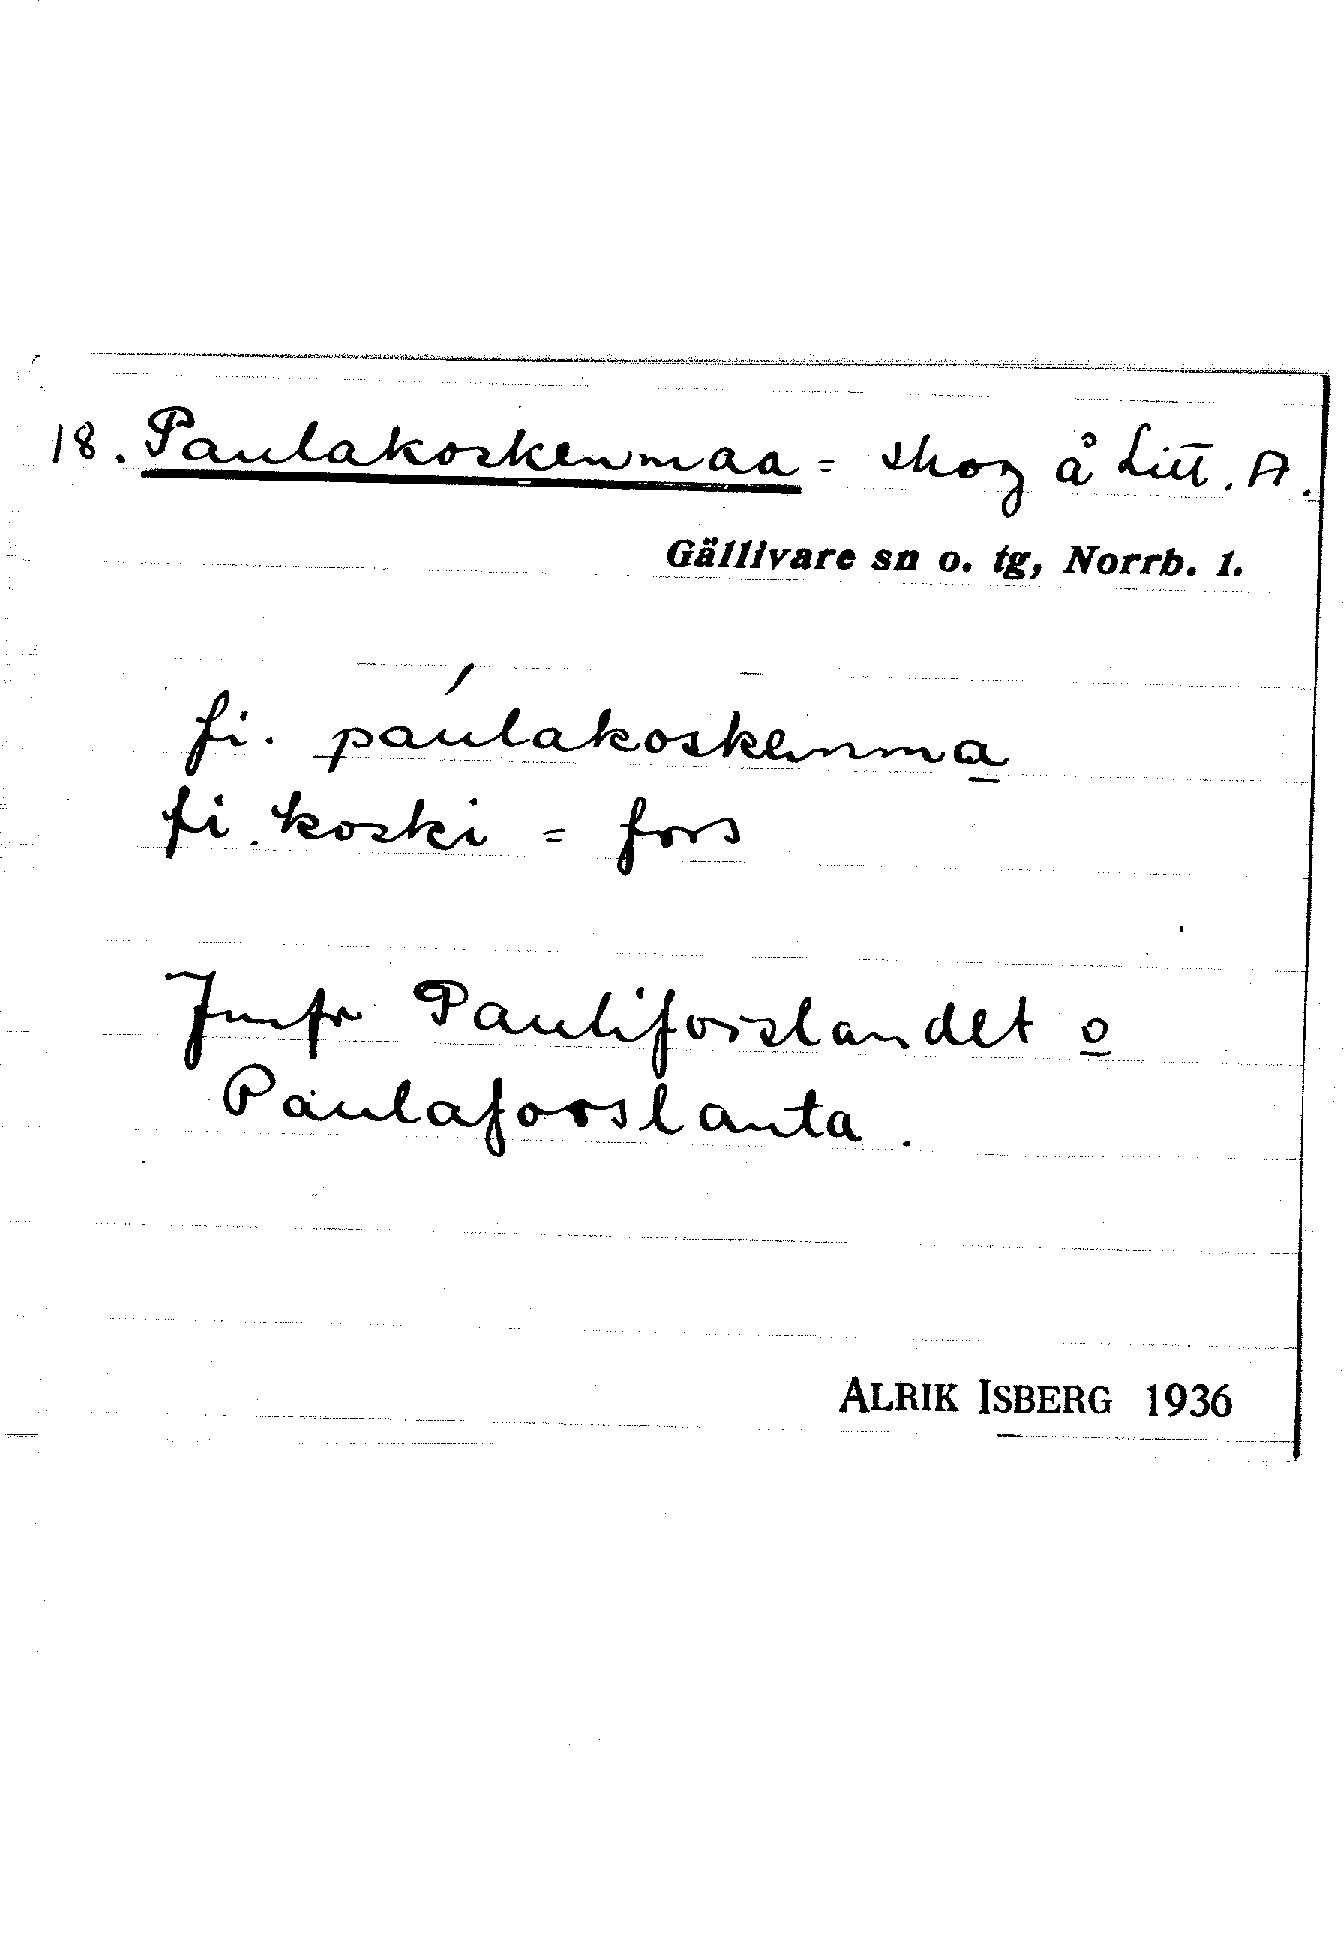 18. Paulakoskenmaa = skog å Litt. A.
Gällivare sn o. tg, Norrb. 1.
fi. páulakoskenma
fi. koski = fors
Jmfr Pauliforslandet o
Paulaforslanta.
ALRIK ISBERG 1936